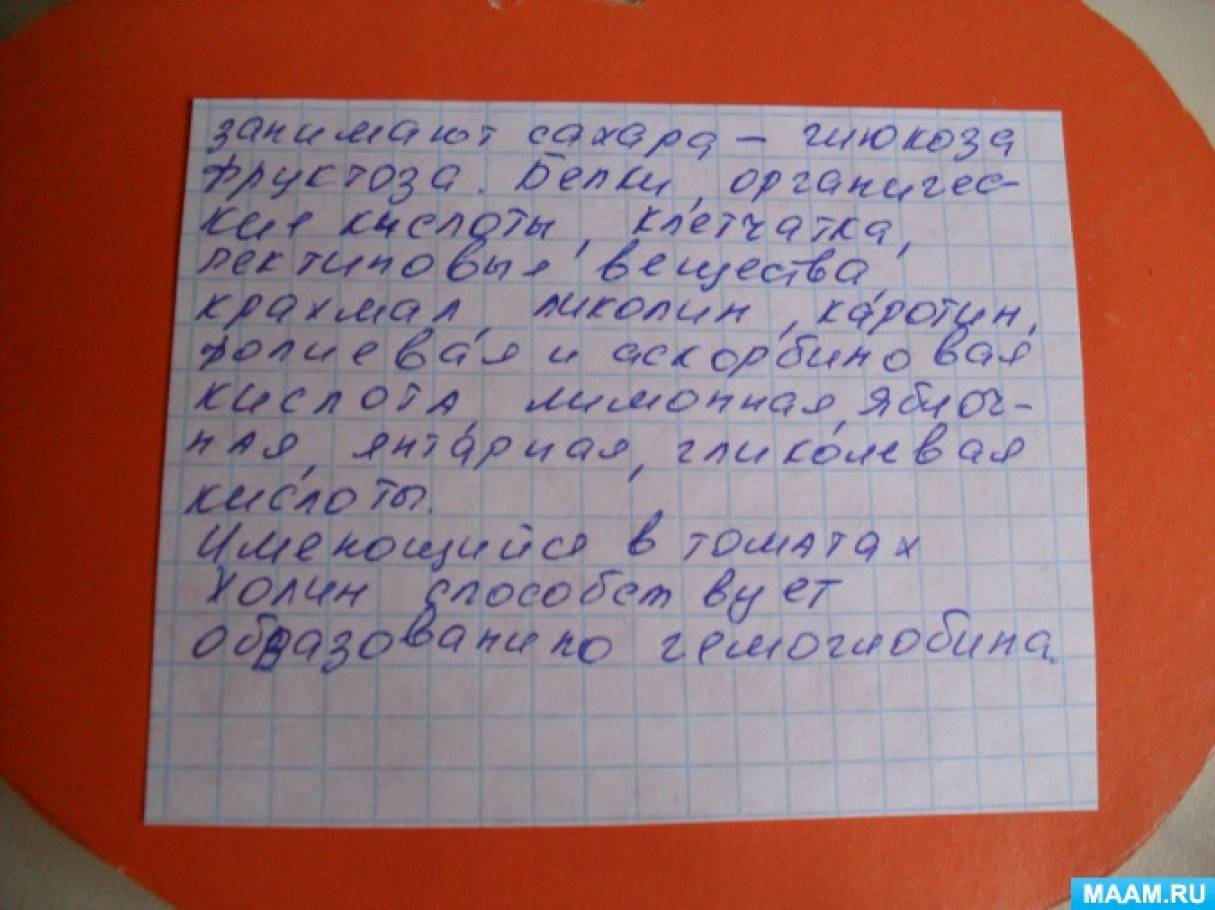 занимают сахара – глюкоза
фруктоза. Белки, органичес-
кие кислоты, клетчатка,
пектиновые вещества,
крахмал, ликопин, каротин,
фолиевая и аскорбиновая
кислота, лимонная, яблоч-
ная, янтарная, гликолевая
кислоты.
Имеющийся в томатах
холин способствует
образованию гемоглобина.
MAAM.RU